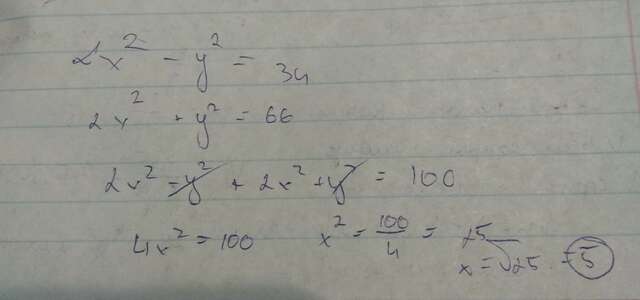 2x² - y² = 34
2x² + y² = 66
2x² - y² + 2x² + y² = 100
4x² = 100 x² = 100/4 = 25
x = √25 = 5